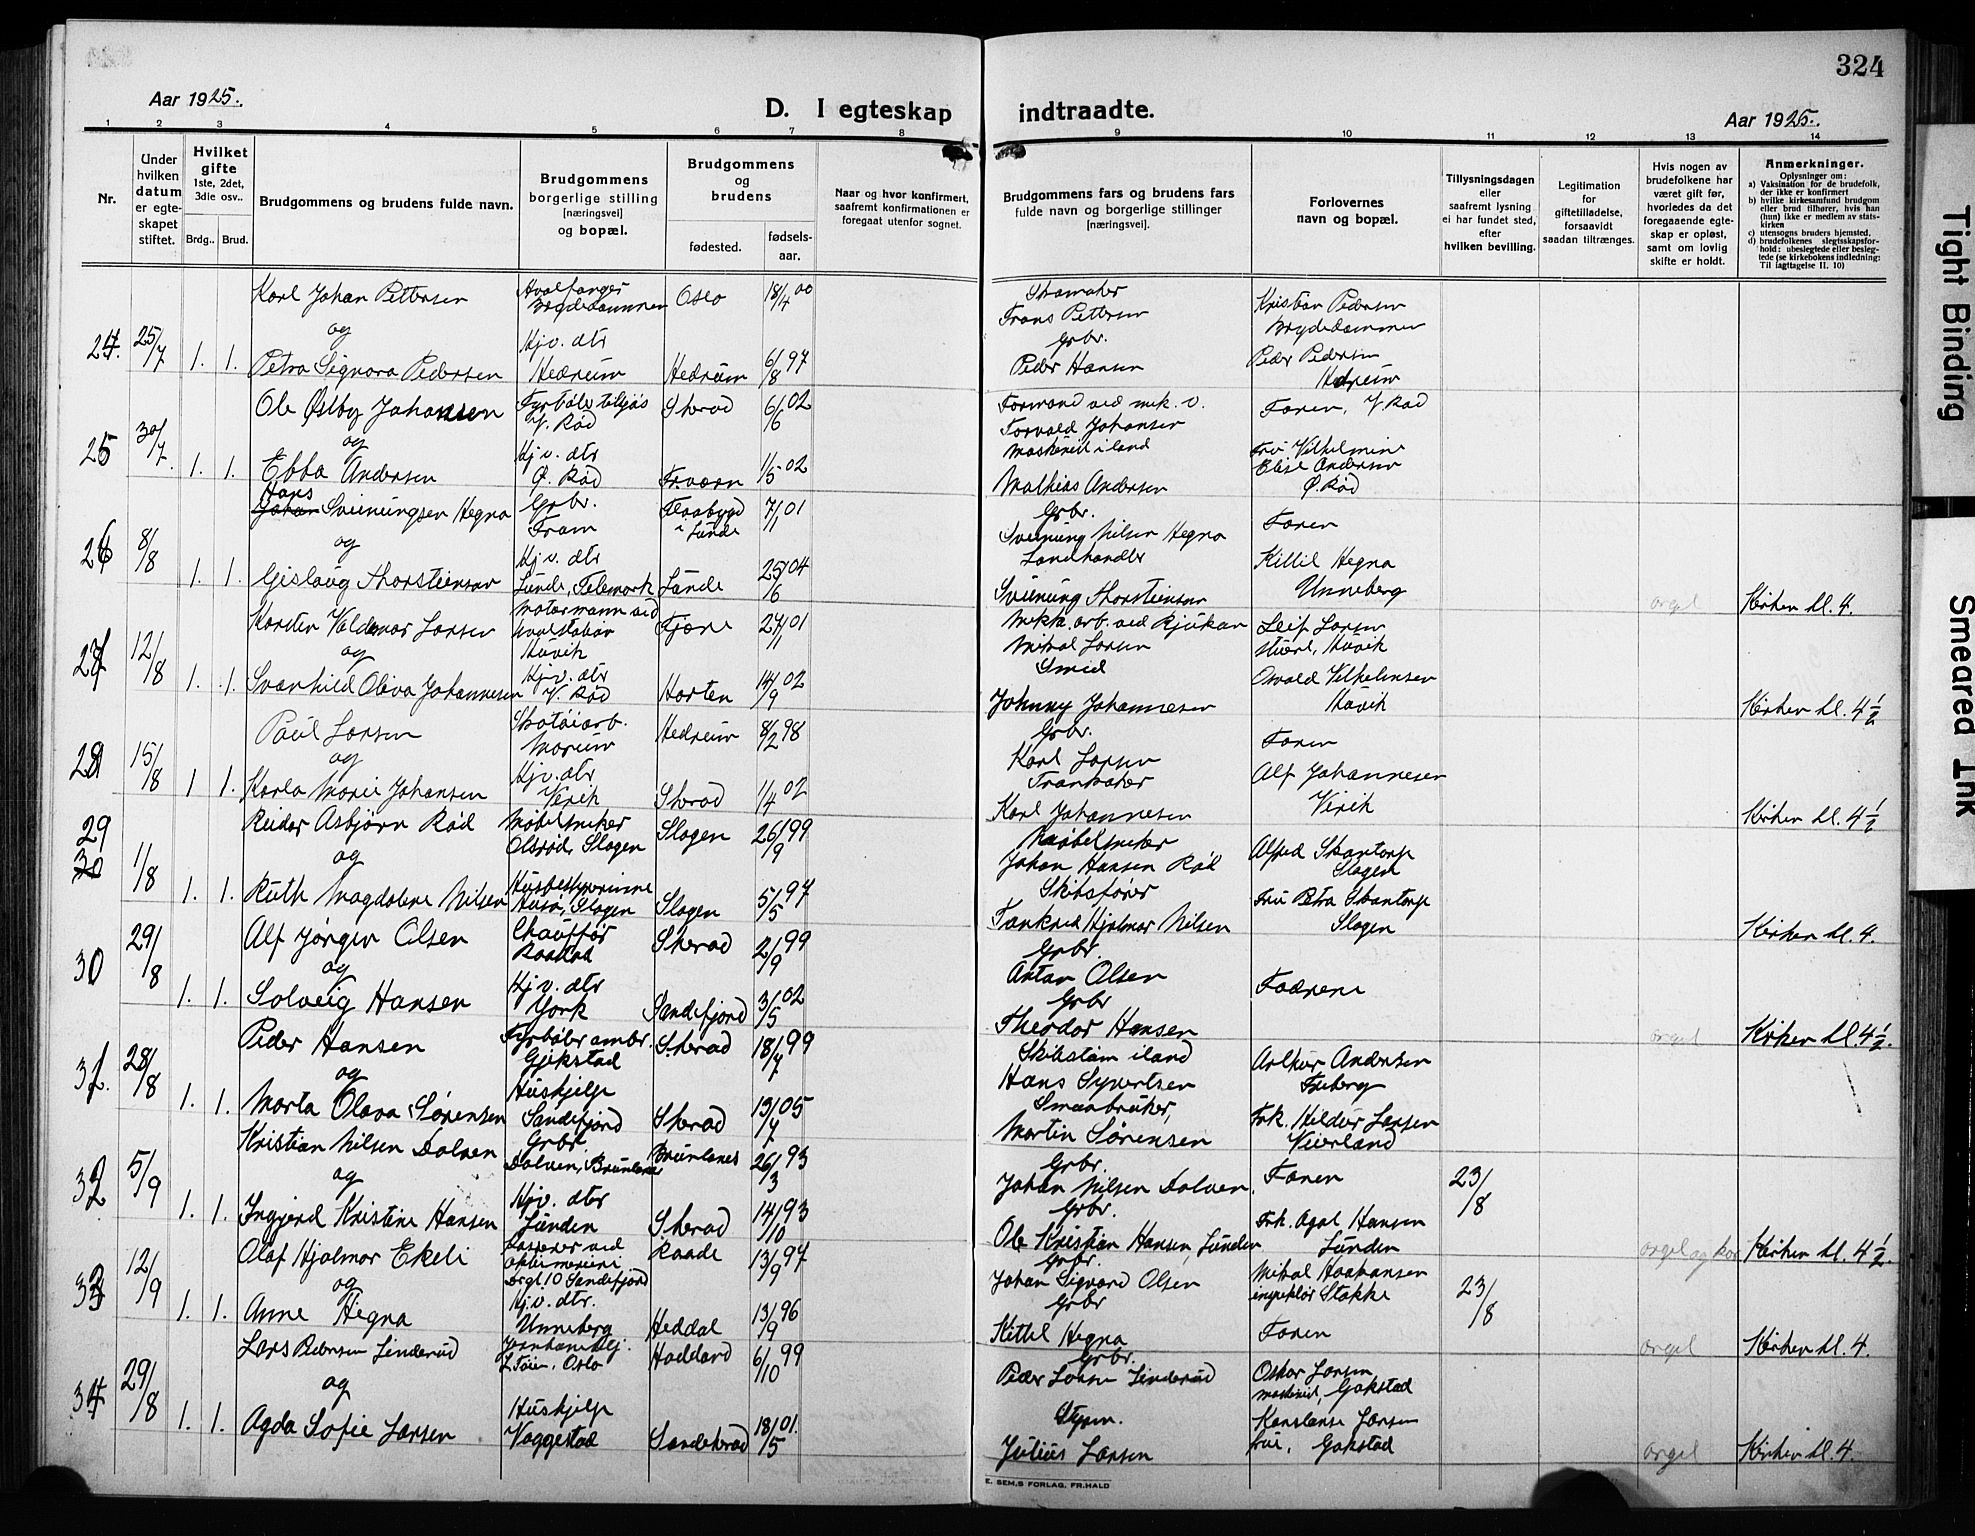 324
Aar 1925.
D. I egteskap indtraadte.
Aar 1925.
1 2 3 4 5 6 7 8 9 10 11 12 13 14
Nr.
Under hvilken datum er egteskapet stiftet.
Hvilket gifte 1ste, 2det, 3die osv..
Brdg.. Brud.
Brudgommens og brudens fulde navn.
Brudgommens borgerlige stilling [næringsvei] og bopæl.
Brudgommens og brudens
fødested.
fødsels-aar.
Naar og hvor konfirmert, saafremt konfirmationen er foregaat utenfor sognet.
Brudgommens fars og brudens fars fulde navn og borgerlige stillinger [næringsvei].
Forlovernes navn og bopæl.
Tillysningsdagen eller saafremt lysning ei har fundet sted, efter hvilken bevilling.
Legitimation for giftetilladelse, forsaavidt saadan tiltrænges.
Hvis nogen av brudefolkene har været gift før, hvorledes da det foregaaende egteskap er opløst, samt om lovlig skifte er holdt.
Anmerkninger.
Oplysninger om:
a) Vaksination for de brudefolk, der ikke er konfirmert
b) hvilke kirkesamfund brudgom eller brud tilhører, hvis han (hun) ikke er medlem av statskirken
c) utensogns bruders hjemsted,
d) brudefolkenes slegtsskapsforhold: ubeslegtede eller beslegtede (se kirkebokens indledning: Til iagttagelse II. 10)
24. 25/7 1. 1.
Karl Johan Pettersen Hvalfanger Brydedammen Oslo 18/4 00
og
Petra Signora Pedersen Hjv. dtr Hedrum Hedrum 6/8 97
Frans Pettersen
Grbr.
Peder Hansen
Kristian Pedersen
Brydedammen
Peder Pedersen
Hedrum
25 30/7 1. 1.
Ole Østby Johansen V. Rød Skerad 6/6 02
og
Ebba Andersen Hjv. dtr Ø. Rød 1/5 02
Formand ved mek. v.
Torvald Johansen
Maskinist i land
Mathias Andersen
Faren, V. Rød
Fru Vilhelmine
Elise Andersen
Ø. Rød
26 8/8 1. 1.
Hans Sveinungsen Hegna Grbr. Fram Flaabygd i Lunde 7/1 01
og
Gislaug Thorsteinsen Hjv. dtr Lunde, Telemark Lunde 25/6 04
Grbr.
Sveinung Nilsen Hegna
Landhandler
Sveinung Thorsteinsen
Faren
Kittil Hegna
Unneberg
orgel
Kirken kl. 4.
27 12/8 1. 1.
Karsten Valdemar Larsen Motormann ved Hvalstation Haavik Fjære 27/1 01
og
Svanhild Oliva Johannesen Hjv. dtr V. Rød Horten 14/9 02
Mekta. arb. ved Rjukan
Mikal Larsen
Smed
Johnny Johannesen
Leif Larsen
Osvald Vilhelmsen
Kirken kl. 4½
28 15/8 1 1.
Paul Larsen Skotøiarb. Morum Hedrum 8/2 98
og
Karla Marie Johansen Hjv. dtr Virik Skerad 1/4 02
Grbr.
Karl Larsen
Trankoker
Karl Johannesen
Faren
Alf Johannesen
Virik
Kirken kl. 4½
29 1/8 1. 1.
Reidar Asbjørn Rød Møbelsnekker Olsrød, Slagen Slagen 26/9 99
og
Ruth Magdalene Nilsen Husbestyrerinne Husø, Slagen Slagen 5/5 97
Møbelsnekker
Johan Hansen Rød
Skibsfører
Tankred Hjalmar Nilsen
Alfred Skantorp
Slagen
Fru Petra Skantorp
Slagen
Kirken kl. 4.
30 29/8 1. 1.
Alf Jørgen Olsen Chauffør Raastad Skerad 2/9 99
og
Solveig Hansen Hjv. dtr York Sandefjord 3/5 02
Grbr.
Anton Olsen
Grbr
Theodor Hansen
Fædrene
orgel
Kirken kl. 4½.
31. 28/8 1. 1.
Peder Hansen Fyrbøter ombr. Gjekstad Skerad 18/7 99
og
Marta Olava Sørensen Hushjelp Sandefjord Skerad 13/7 05
Skibstøm. iland
Hans Syvertsen
Smaabruker,
Martin Sørensen
Arthur Andersen
Frk. Hildur Larsen
Veierland
32 5/9 1. 1.
Kristian Nilsen Dolven Grbr. Dolven, Brunlanes Brunlanes 26/3 93
og
Ingjerd Kristine Hansen Hjv. dtr Lunden Skerad 14/10 93
Grbr.
Johan Nilsen Dolven
Grbr.
Ole Kristian Hansen, Lunden
Faren
Frk. Agat Hansen
Lunden
23/8
orgel og kor
Kirken kl. 4½.
33 12/9 1. 1.
Olaf Hjalmar Ekeli Kasserer ved Aktiemeieri Sandefjord Raade 13/9 97
og
Anne Hegna Hjv. dtr. Unneberg Heddal 13/9 96
Grbr.
Johan Sigvard Olsen
Grbr
Kittil Hegna
Mikal Haakansen
inspektør Stokke
Faren
23/8
orgel
Kirken kl. 4.
34 29/8 1. 1.
Lars Pedersen Linderud L. Tøien, Oslo Hadeland 6/10 99
og
Agda Sofie Larsen Hushjelp Vaggestad Sandeherad 18/5 01.
Grbr.
Peder Larsen Linderud
Styrm.
Julius Larsen
Oskar Larsen
maskinist, Gokstad
Konstanse Larsen
frue, Gokstad
orgel
Kirken kl. 4.
E. SEM,S FORLAG, FR.HALD
Tight Binding
Smeared Ink